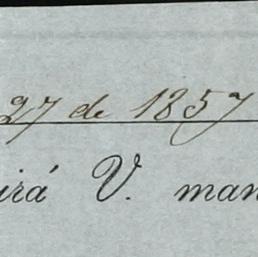 27 de 1857
irá V. man